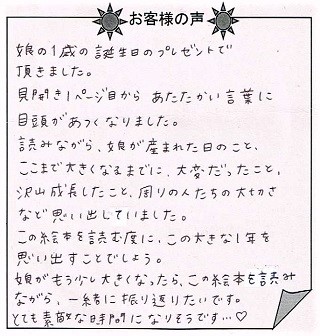 お客様の声
娘の1歳の誕生日のプレゼントで
頂きました。
見開き1ページ目から あたたかい言葉に
目頭があつくなりました。
読みながら、娘が産まれた日のこと、
ここまで大きくなるまでに、大変だったこと、
沢山成長したこと、周りの人たちの大切さ
など思い出していました。
この絵本を読む度に、この大きな1年を
思い出すことでしょう。
娘がもう少し大きくなったら、この絵本を読み
ながら、一緒に振り返りたいです。
とても素敵な時間になりそうです…♡